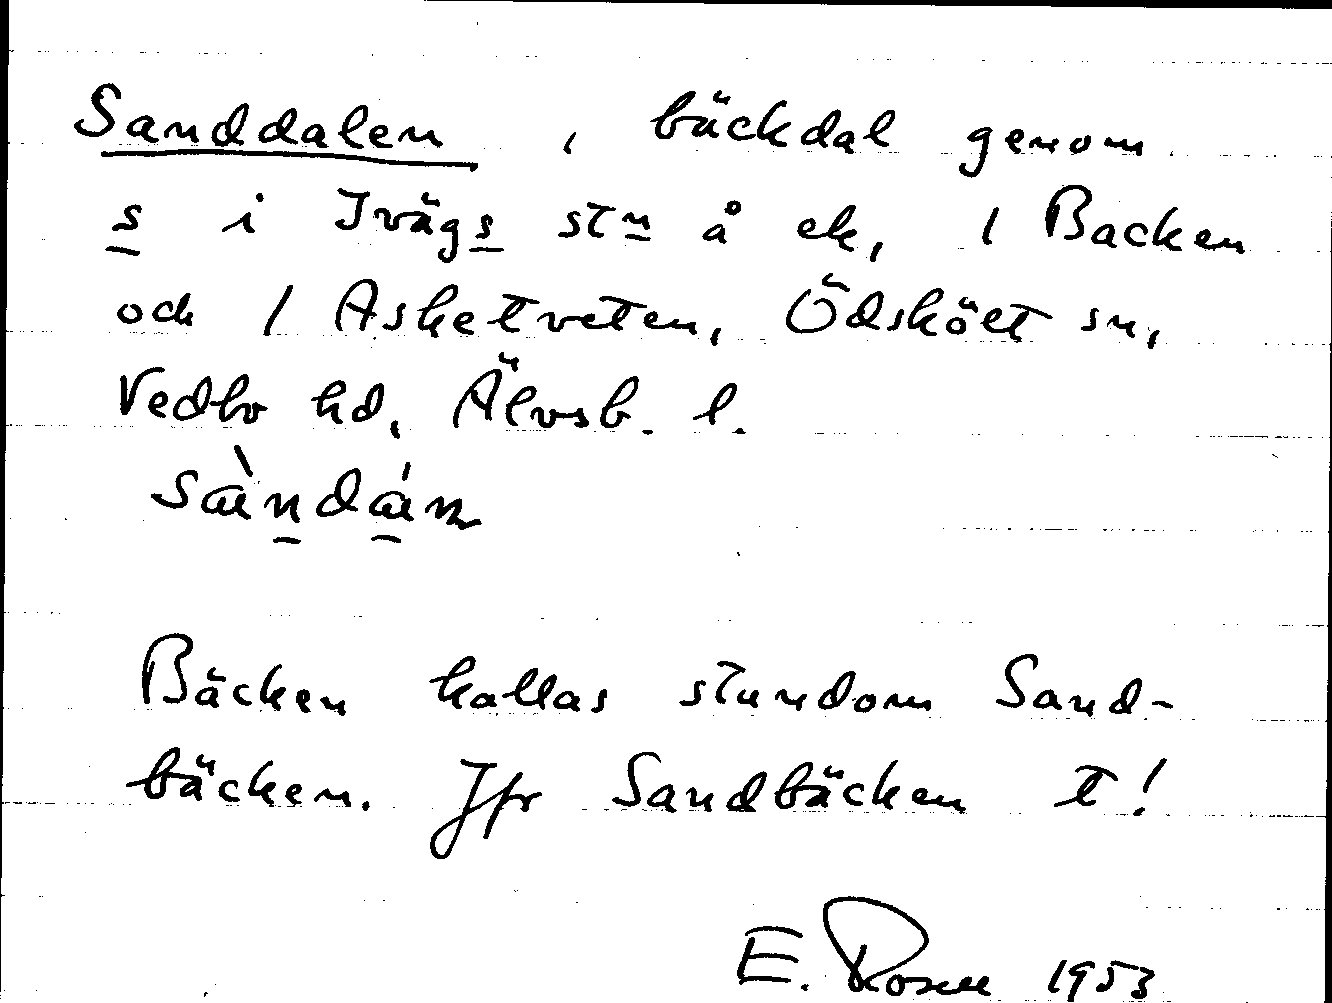 Sanddalen, bäckdal genom
s i Ivägs stn å ek, 1 Backen
och 1 Asketveten, Ödskölt sn,
Vedbo hd, Älvsb. l.
Bäcken kallas stundom Sand-
bäcken. Jfr Sandbäcken t!
E. Rosell 1953